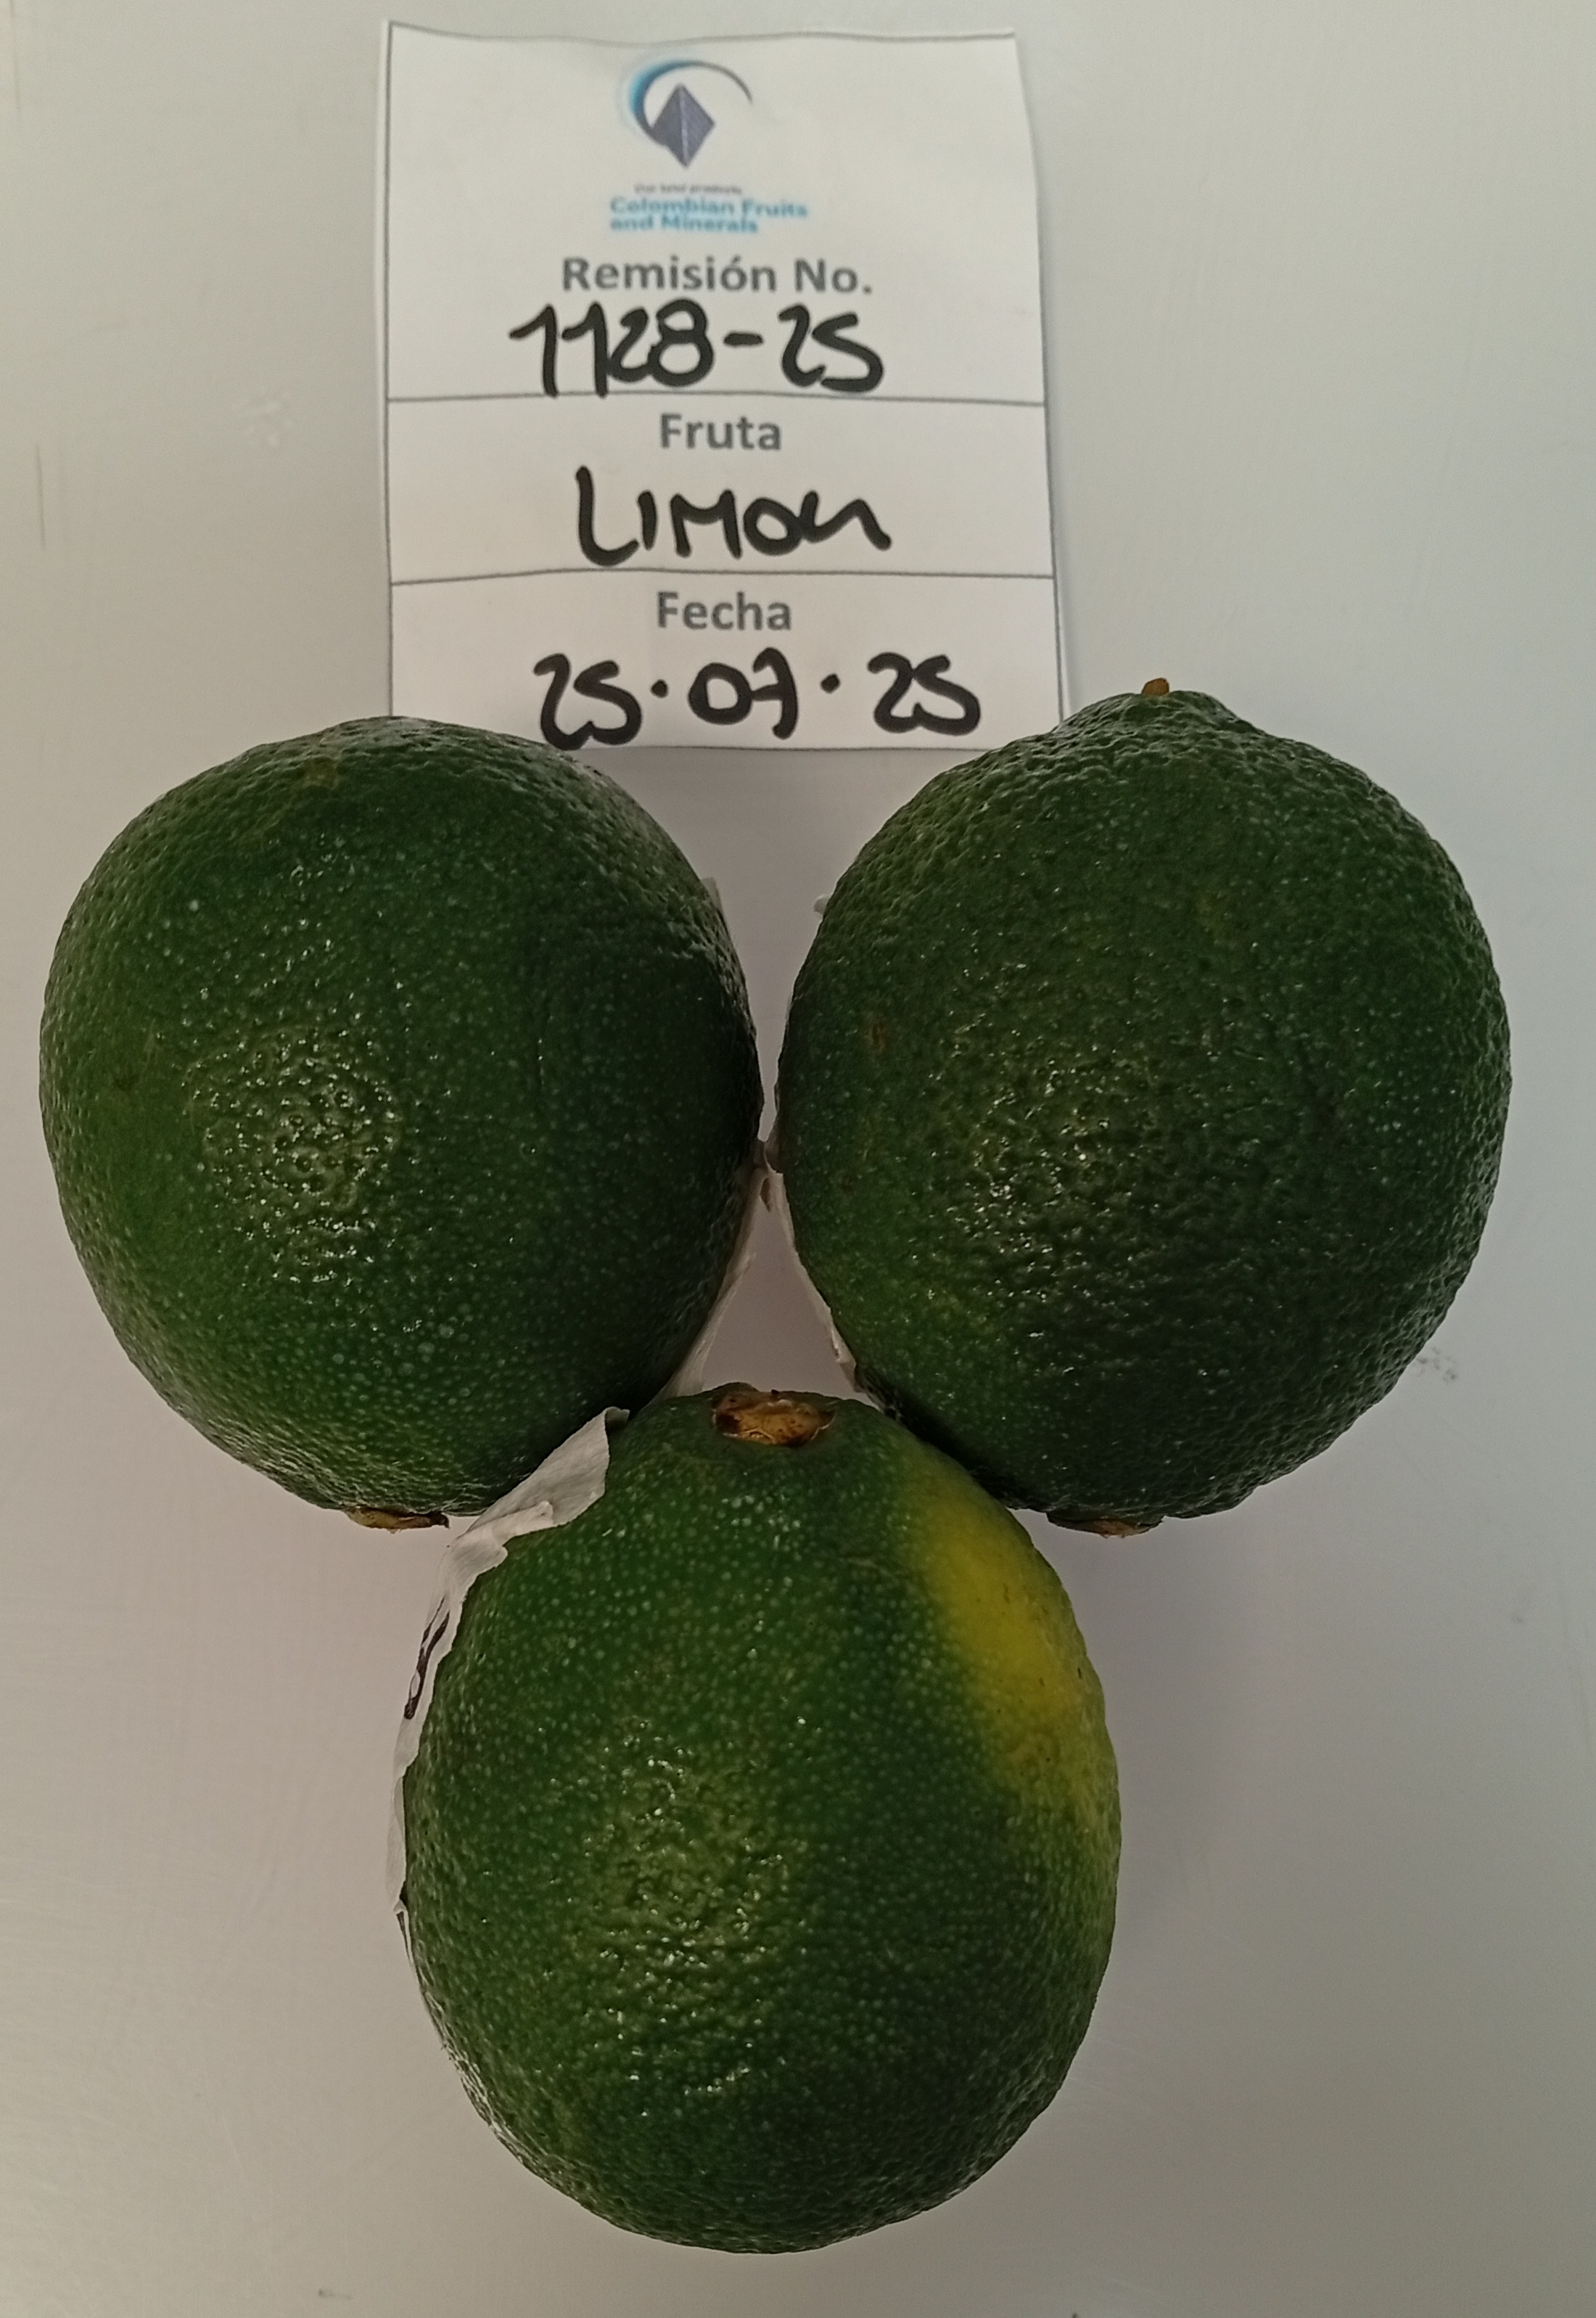 Our land products
Colombian Fruits
and Minerals
Remisión No.
1128-25
Fruta
LIMON
Fecha
25·07·25